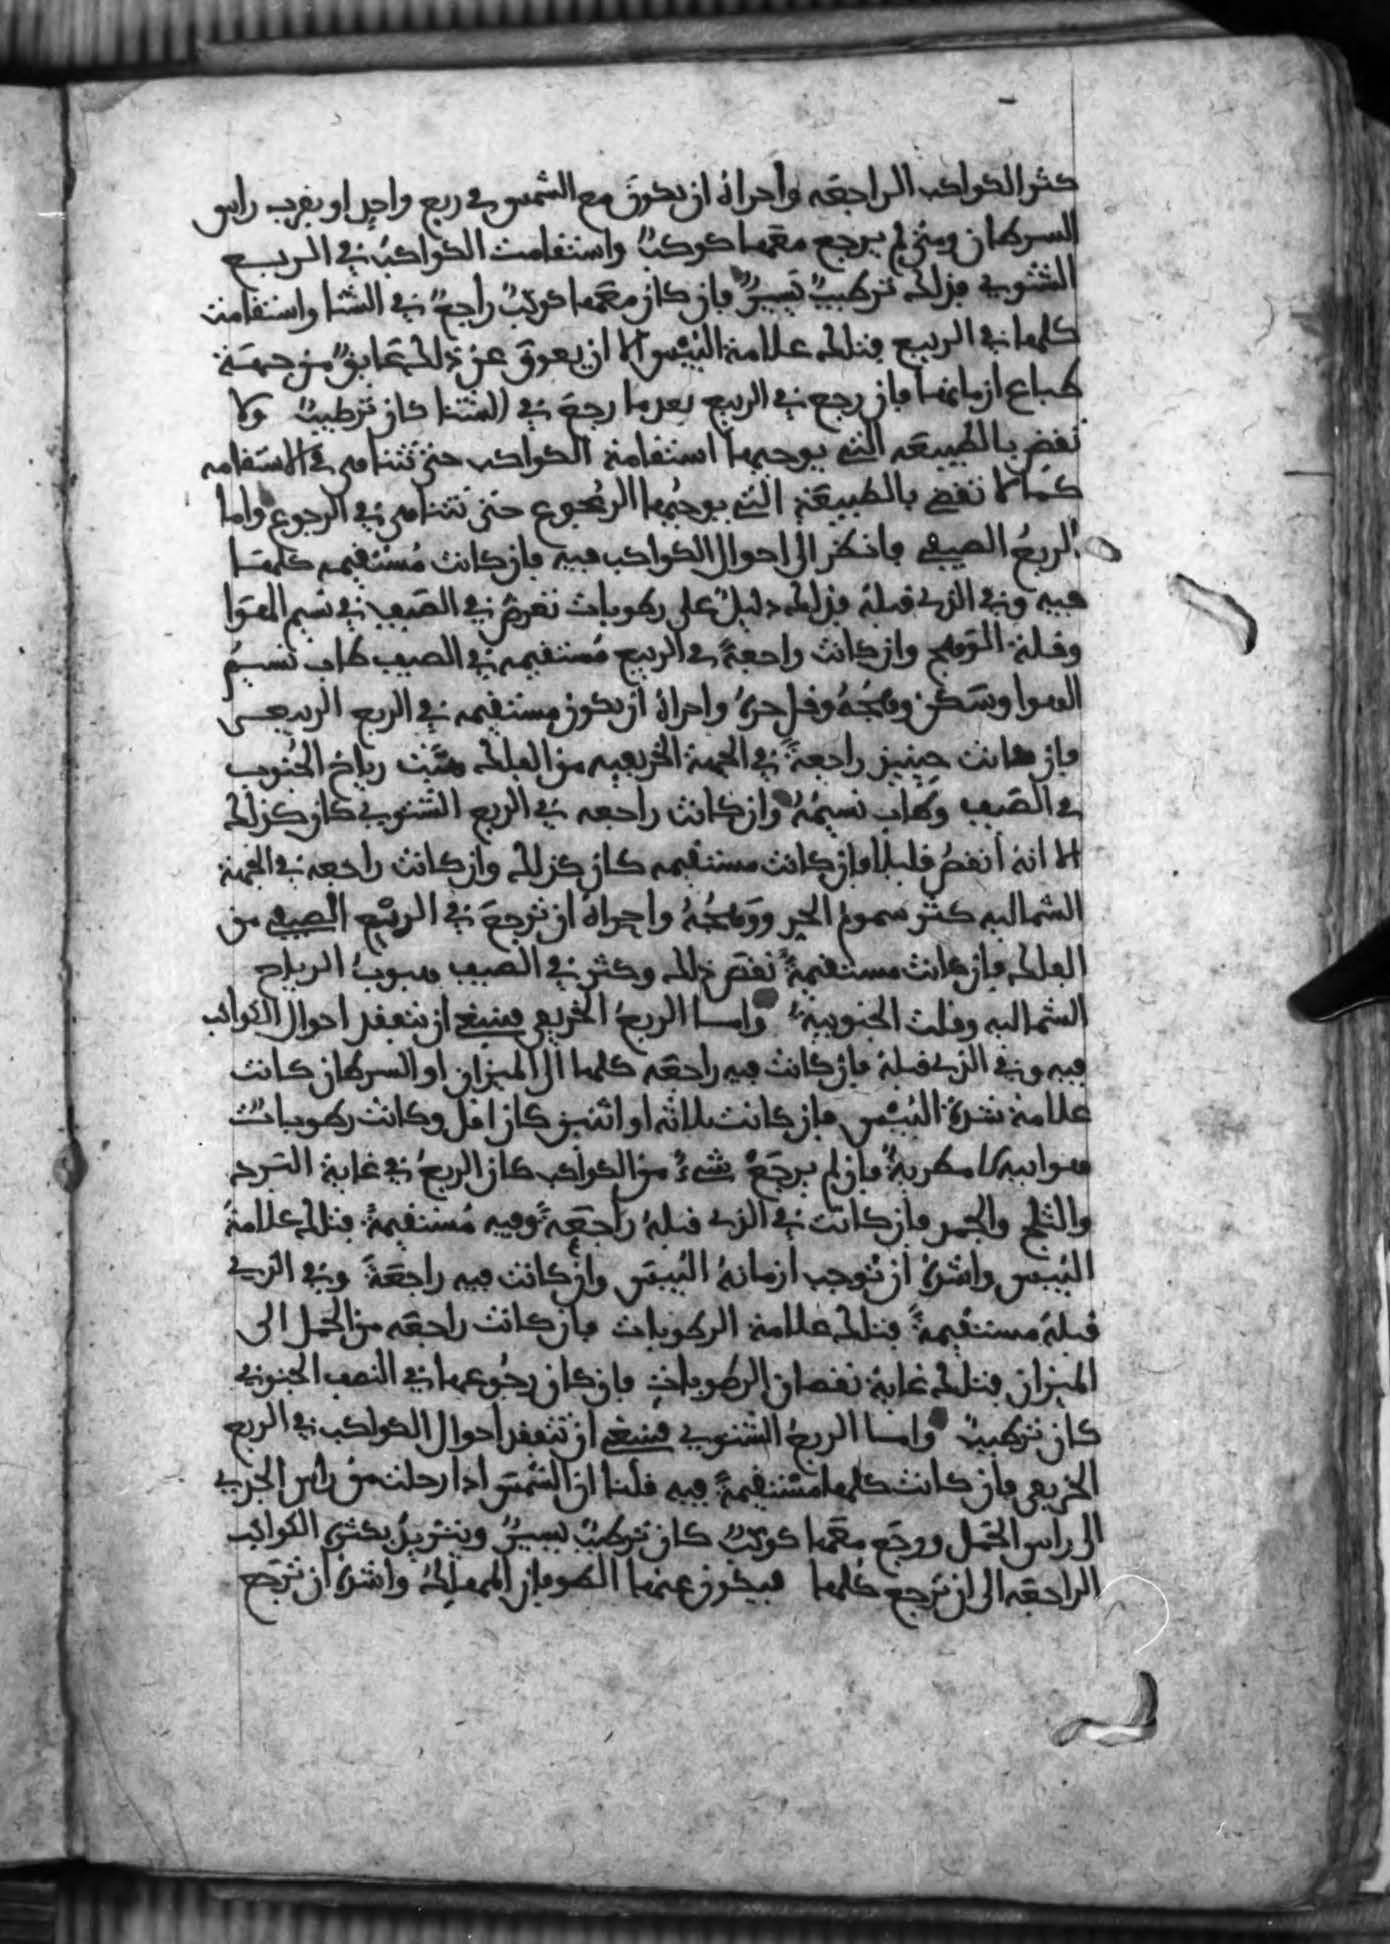 كثر الكواكب الراجعه واحراه ان يكون مع الشمس في ربع واحد او بقرب راس
السرطان ومتى لم يرجع معها كوكب واستقامت الكواكب في الربع
الشتوي فذلك ترطيب يسير فان كان معها كوكب راجع في الشتا واستقامت
كلها في الربيع فتلك علامة اليبس الا ان يعوق عن ذلك عايق من جهة
طباع ازمانها فان رجع في الربيع بعدما رجع في الشتا كان ترطيب ولا
تقض بالطبيعه التي يوجبها استقامة الكواكب حتى تتناهى في الاستقامه
كما لا تقضي بالطبيعة التي يوجبها الرجوع حتى تتناهى في الرجوع واما
الربع الصيفي فانظر الى احوال الكواكب فيه فان كانت مستقيمه كلها
فيه وفي الذي قبله فذلك دليل على رطوبات تعرض في الصيف في نسيم الهوا
وقلة الوهج وان كانت راجعة في الربيع مستقيمه في الصيف طاب نسيم
الهوا وسكن وهجه وقل حره واحراه ان يكون مستقيمه في الربع الربيعي
فان كانت حينيذ راجعة في الجهة الخريفيه من الفلك هبت رياح الجنوب
في الصيف وطاب نسيمه وان كانت راجعه في الربع الشتوي كان كذلك
الا انه انقص قليلا فان كانت مستقيمه كان كذلك وان كانت راجعه في الجهة
الشماليه كثر سموم الحر ووهجه واحراه ان ترجع في الربع الصيفي من
الفلك فان كانت مستقيمة نقص ذلك وكثر في الصيف هبوب الرياح
الشماليه وقلت الجنوبية واما الربع الخريفي فينبغي ان يتفقد احوال الكواكب
فيه وفي الذي قبله فان كانت فيه راجعه كلها الى الميزان او السرطان كانت
علامة شدة اليبس فان كانت ثلاثه او اثنين كان اقل وكانت رطوبات
هواييه لا مطرية فان لم يرجع شيء من الكواكب كان الربع في غاية البرد
والثلج والجمد فان كانت في الذي قبله راجعة وفيه مستقيمة فتلك علامة
اليبس واشده ان توجب ازمانه اليبس وان كانت فيه راجعة وفي الذي
قبله مستقيمة فتلك علامة الرطوبات فان كانت راجعه من الحمل الى
الميزان فتلك غاية نقصان الرطوبات فان كان رجوعها في النصف الجنوبي
كان ترطيب واما الربع الشتوي فينبغي ان تتفقد احوال الكواكب في الربع
الخريفي فان كانت كلها مستقيمة فيه قلنا ان الشمس اذا رحلت من راس الجدي
الى راس الحمل ورجع معها كوكب كان ترطيب يسير ويتزيد بكثرة الكواكب
الراجعه الى ان ترجع كلها فيكون عنها الطوفان المهلك واشده ان ترجع